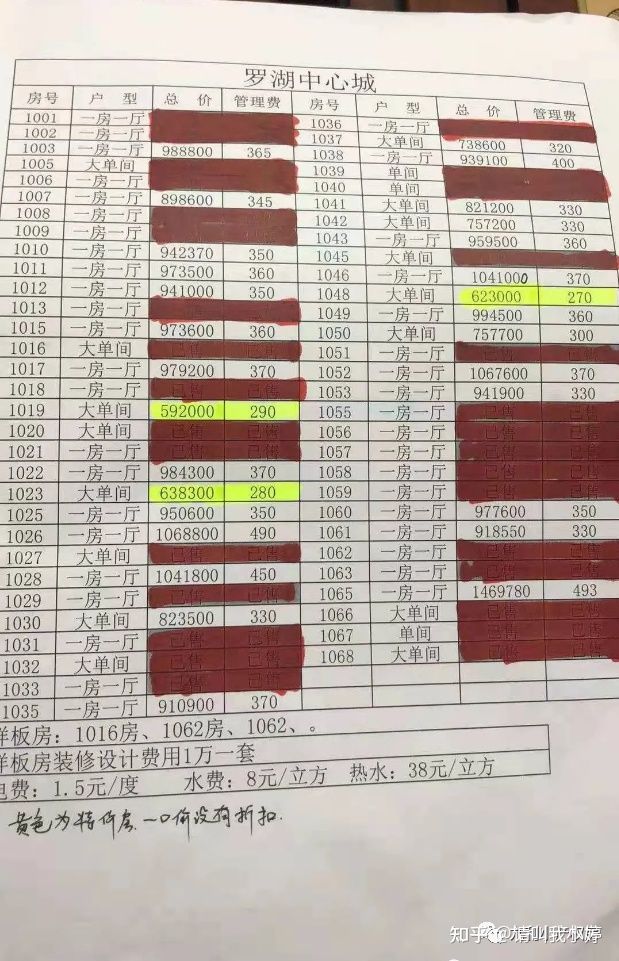 罗湖中心城
房号 户 型 总 价 管理费 房号 户 型 总 价 管理费
1001 一房一厅 1036 一房一厅
1002 一房一厅 1037 大单间 738600 320
1003 一房一厅 988800 365 1038 一房一厅 939100 400
1005 大单间 1039 单间
1006 一房一厅 1040 单间
1007 一房一厅 898600 345 1041 大单间 821200 330
1008 一房一厅 1042 大单间 757200 330
1009 一房一厅 1043 一房一厅 959500 360
1010 一房一厅 942370 350 1045 大单间
1011 一房一厅 973500 360 1046 一房一厅 1041000 370
1012 一房一厅 941000 350 1048 大单间 623000 270
1013 一房一厅 1049 一房一厅 994500 360
1015 一房一厅 973600 360 1050 大单间 757700 300
1016 大单间 已售 已售 1051 一房一厅 已售 已售
1017 一房一厅 979200 370 1052 一房一厅 1067600 370
1018 一房一厅 已售 已售 1053 一房一厅 941900 330
1019 大单间 592000 290 1055 一房一厅 已售 已售
1020 大单间 已售 已售 1056 一房一厅 已售 已售
1021 一房一厅 已售 已售 1057 一房一厅 已售 已售
1022 一房一厅 984300 370 1058 一房一厅 已售 已售
1023 大单间 638300 280 1059 一房一厅 已售 已售
1025 一房一厅 950600 350 1060 一房一厅 977600 350
1026 一房一厅 1068800 490 1061 一房一厅 918550 330
1027 大单间 已售 已售 1062 一房一厅 已售 已售
1028 一房一厅 1041800 450 1063 一房一厅 已售 已售
1029 一房一厅 已售 已售 1065 一房一厅 1469780 493
1030 大单间 823500 330 1066 大单间 已售 已售
1031 一房一厅 已售 已售 1067 单间 已售 已售
1032 大单间 已售 已售 1068 大单间 已售 已售
1033 一房一厅 已售 已售
1035 一房一厅 910900 370
样板房：1016房、1062房、1062、。
样板房装修设计费用1万一套
电费：1.5元/度 水费：8元/立方 热水：38元/立方
黄色为特价房一口价没有折扣.
知乎 @请叫我木婷